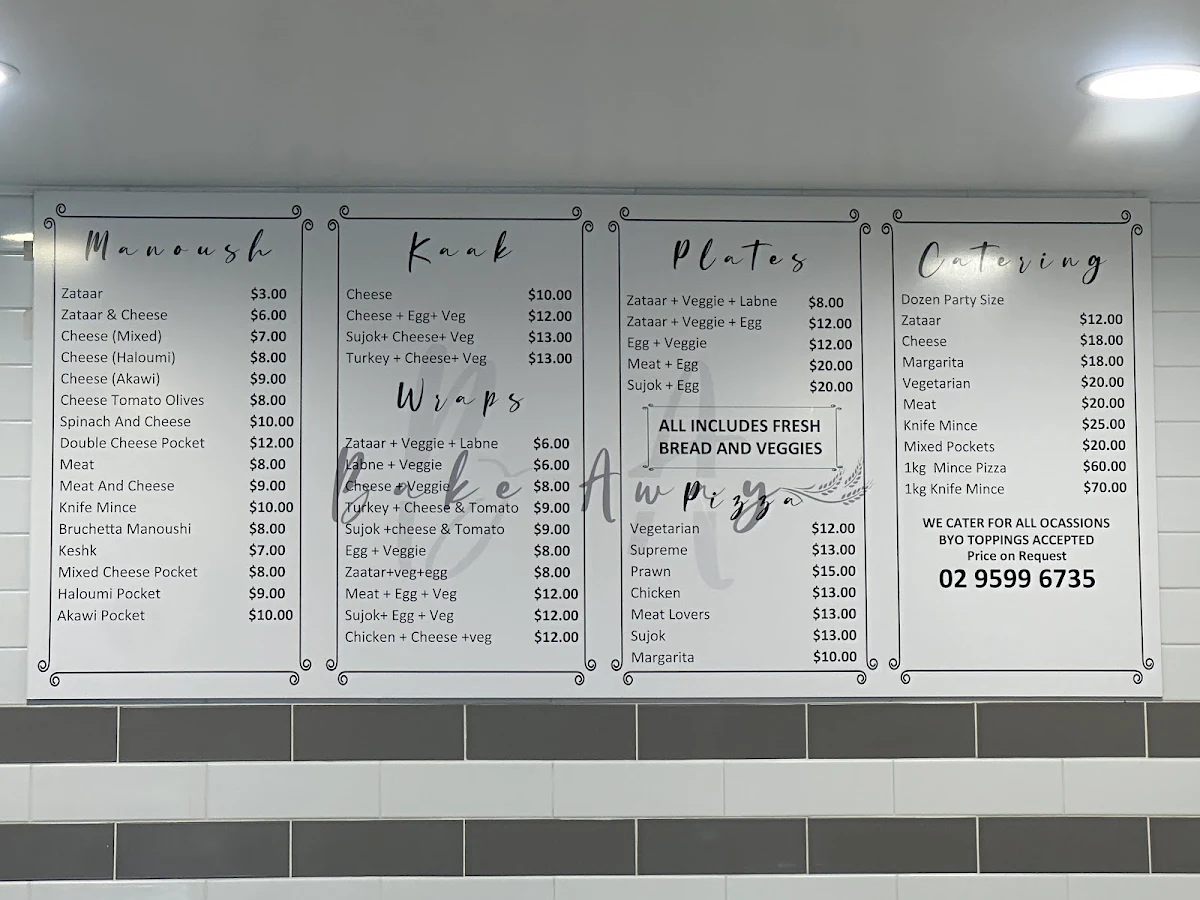 Manoush
Zataar $3.00
Zataar & Cheese $6.00
Cheese (Mixed) $7.00
Cheese (Haloumi) $8.00
Cheese (Akawi) $9.00
Cheese Tomato Olives $8.00
Spinach And Cheese $10.00
Double Cheese Pocket $12.00
Meat $8.00
Meat And Cheese $9.00
Knife Mince $10.00
Bruchetta Manoushi $8.00
Keshk $7.00
Mixed Cheese Pocket $8.00
Haloumi Pocket $9.00
Akawi Pocket $10.00
Kaak
Cheese $10.00
Cheese + Egg+ Veg $12.00
Sujok+ Cheese+ Veg $13.00
Turkey + Cheese+ Veg $13.00
Wraps
Zataar + Veggie + Labne $6.00
Labne + Veggie $6.00
Cheese + Veggie $8.00
Turkey + Cheese & Tomato $9.00
Sujok +cheese & Tomato $9.00
Egg + Veggie $8.00
Zaatar+veg+egg $8.00
Meat + Egg + Veg $12.00
Sujok+ Egg + Veg $12.00
Chicken + Cheese +veg $12.00
BA
Bake Away
Plates
Zataar + Veggie + Labne $8.00
Zataar + Veggie + Egg $12.00
Egg + Veggie $12.00
Meat + Egg $20.00
Sujok + Egg $20.00
ALL INCLUDES FRESH
BREAD AND VEGGIES
Pizza
Vegetarian $12.00
Supreme $13.00
Prawn $15.00
Chicken $13.00
Meat Lovers $13.00
Sujok $13.00
Margarita $10.00
Catering
Dozen Party Size
Zataar $12.00
Cheese $18.00
Margarita $18.00
Vegetarian $20.00
Meat $20.00
Knife Mince $25.00
Mixed Pockets $20.00
1kg Mince Pizza $60.00
1kg Knife Mince $70.00
WE CATER FOR ALL OCASSIONS
BYO TOPPINGS ACCEPTED
Price on Request
02 9599 6735